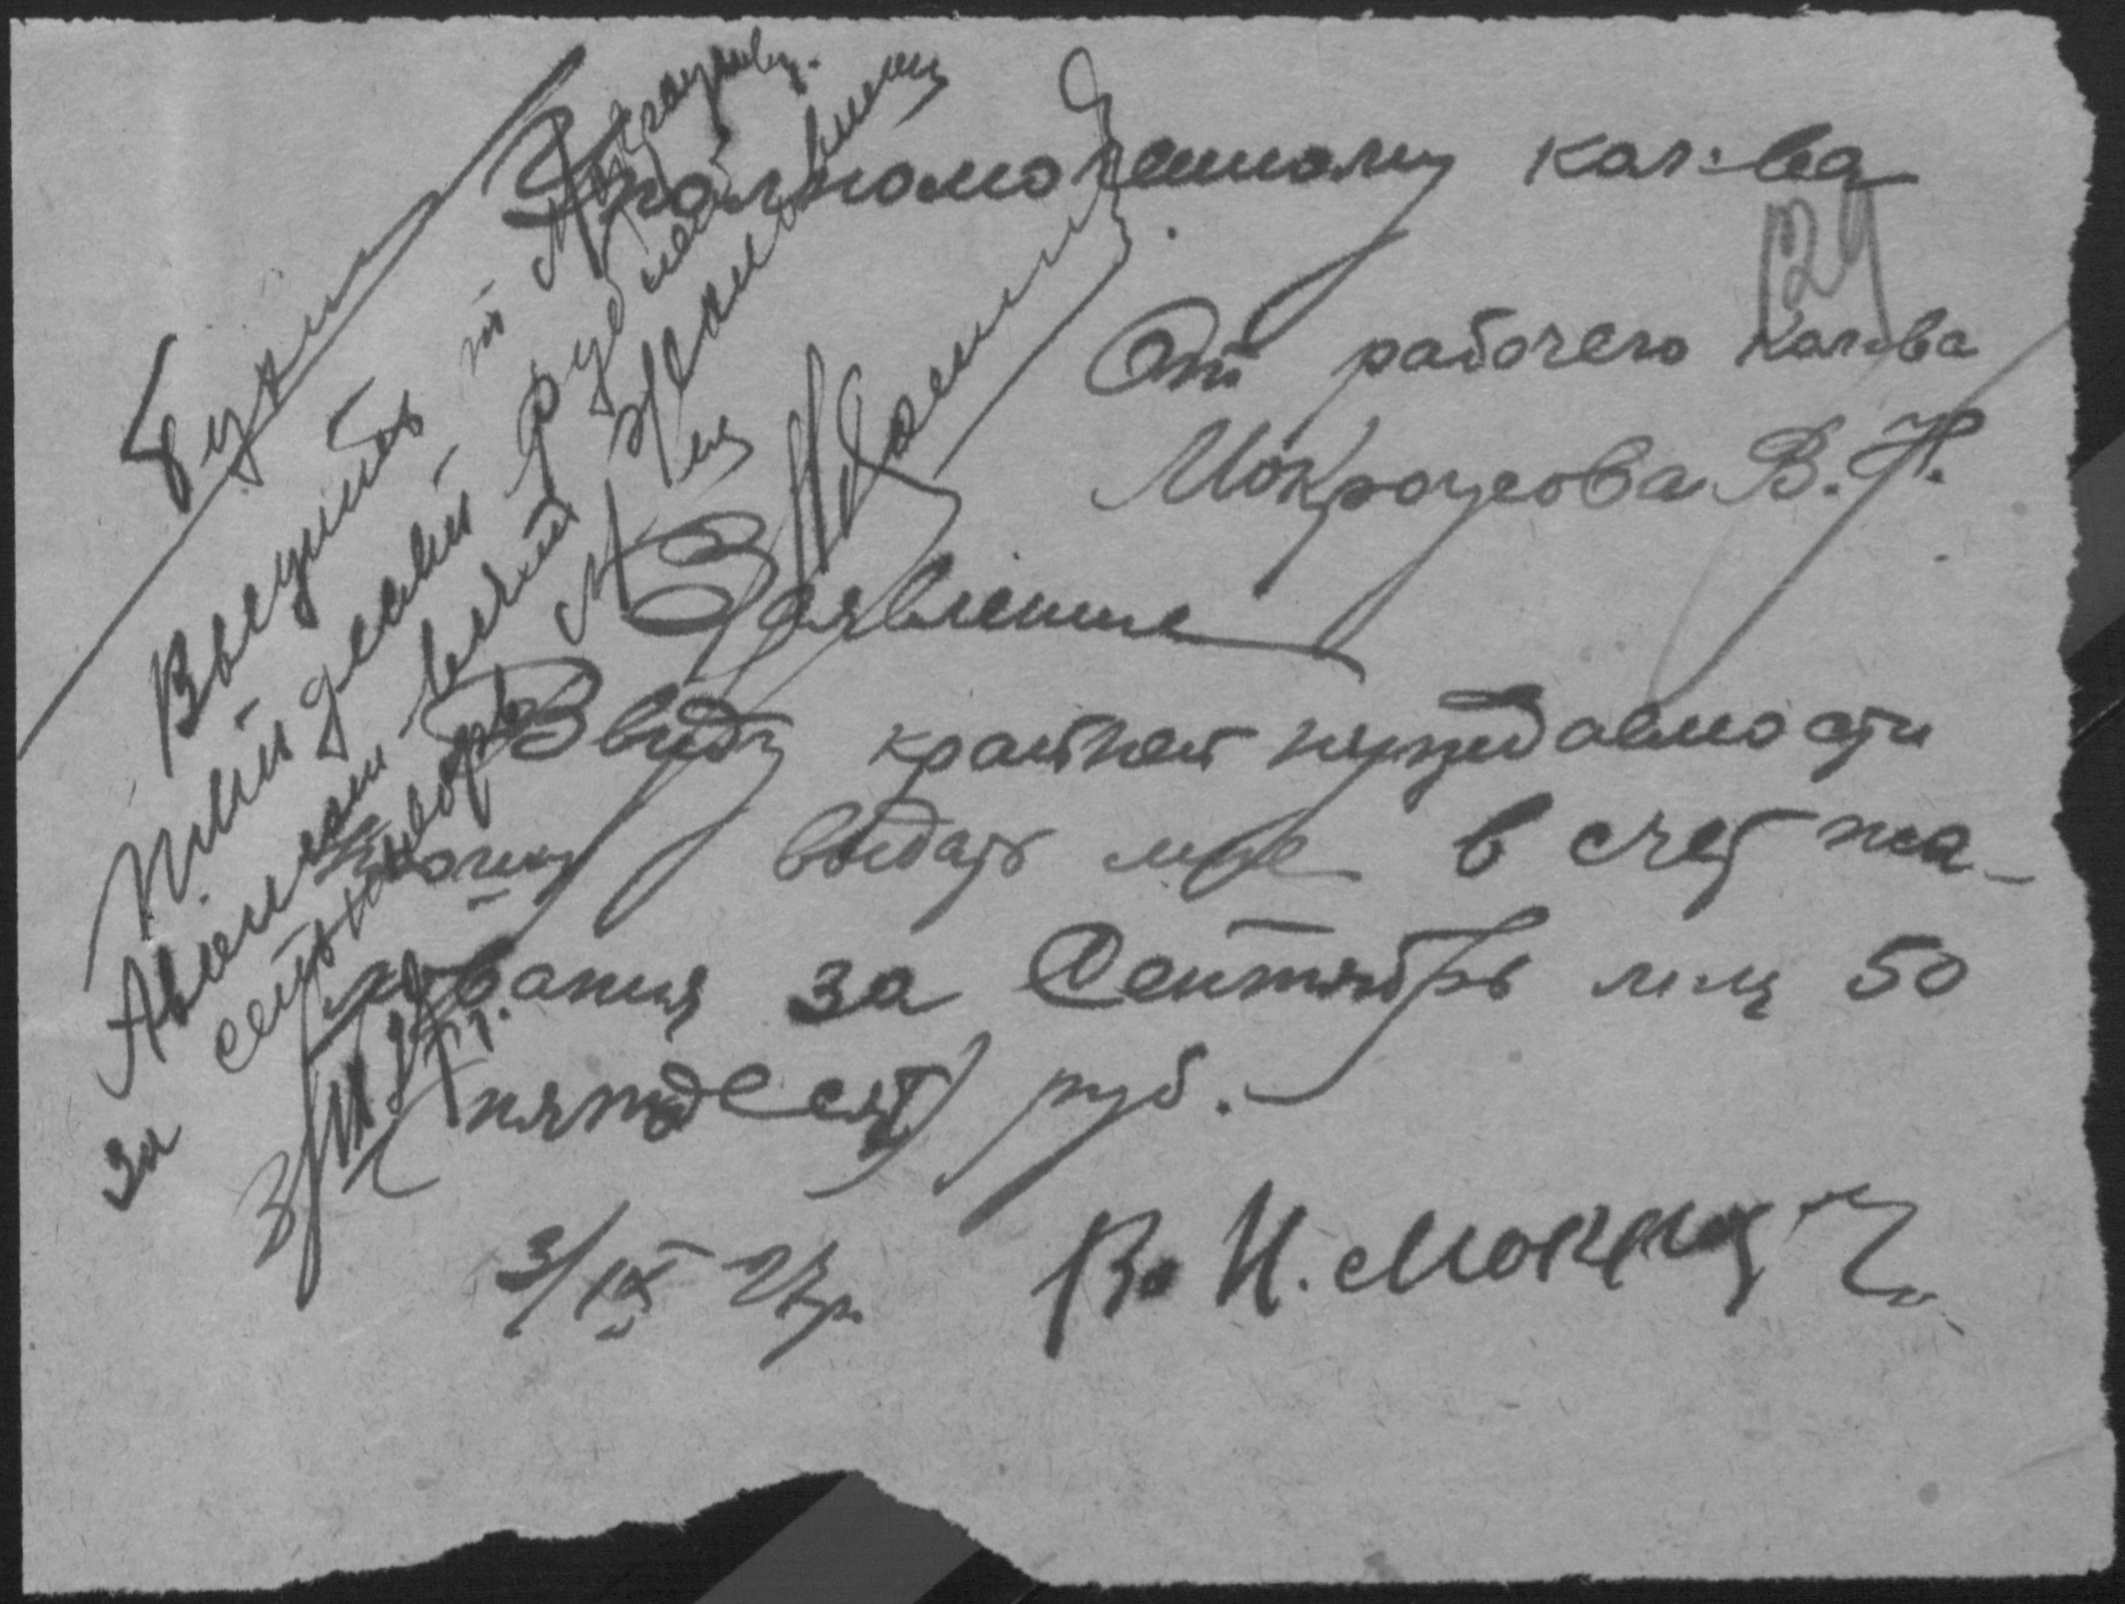 Уполномоченному кол-ва
129
От рабочего кол-ва
Мокроусова В. И.
Заявление
Ввиду крайней нуждаемости
прошу выдать мне в счет жа-
лования за Сентябрь м-ц 50
(пятьдесят) руб.
3/IX 27 г. В. И. Мокроус
Бух
Выписать т. Мокроусову
пятьдесят рублей
Авансом в счет жалования
за сентябрь м-ц
3/IX 27 г.